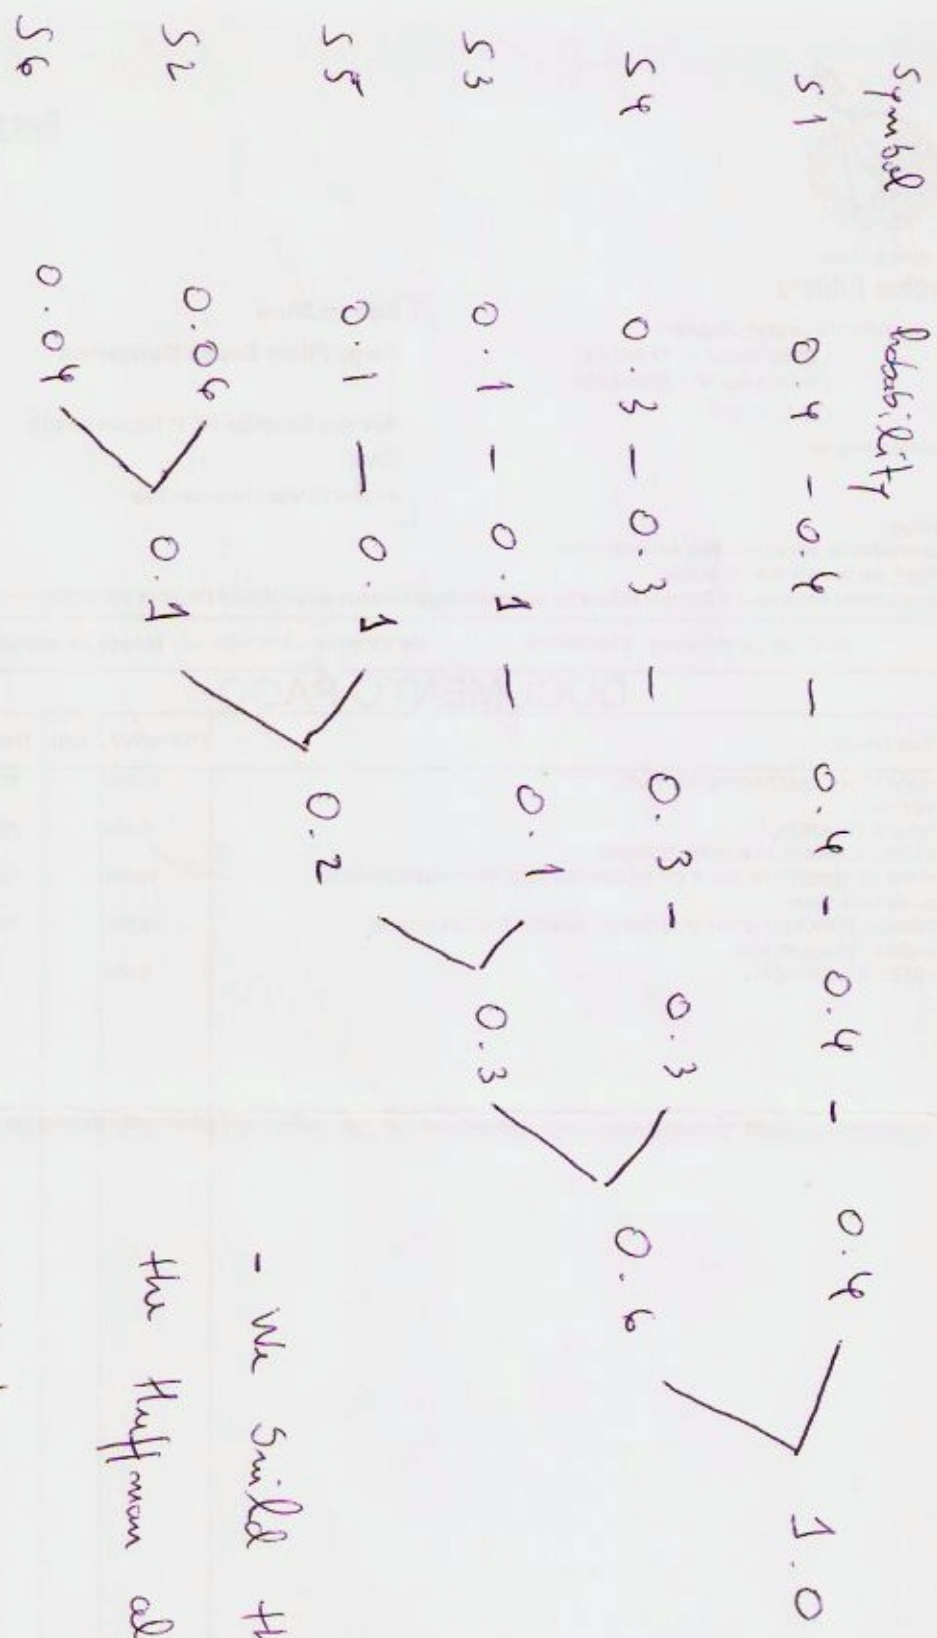 Symbol Probability
S1 0.4 - 0.4 - 0.4 - 0.4 - 0.4 1.0
S4 0.3 - 0.3 - 0.3 - 0.3 0.6
S3 0.1 - 0.1 - 0.1 0.3
S5 0.1 - 0.1 0.2
S2 0.06 0.1
S6 0.04
- We build th
the Huffman al